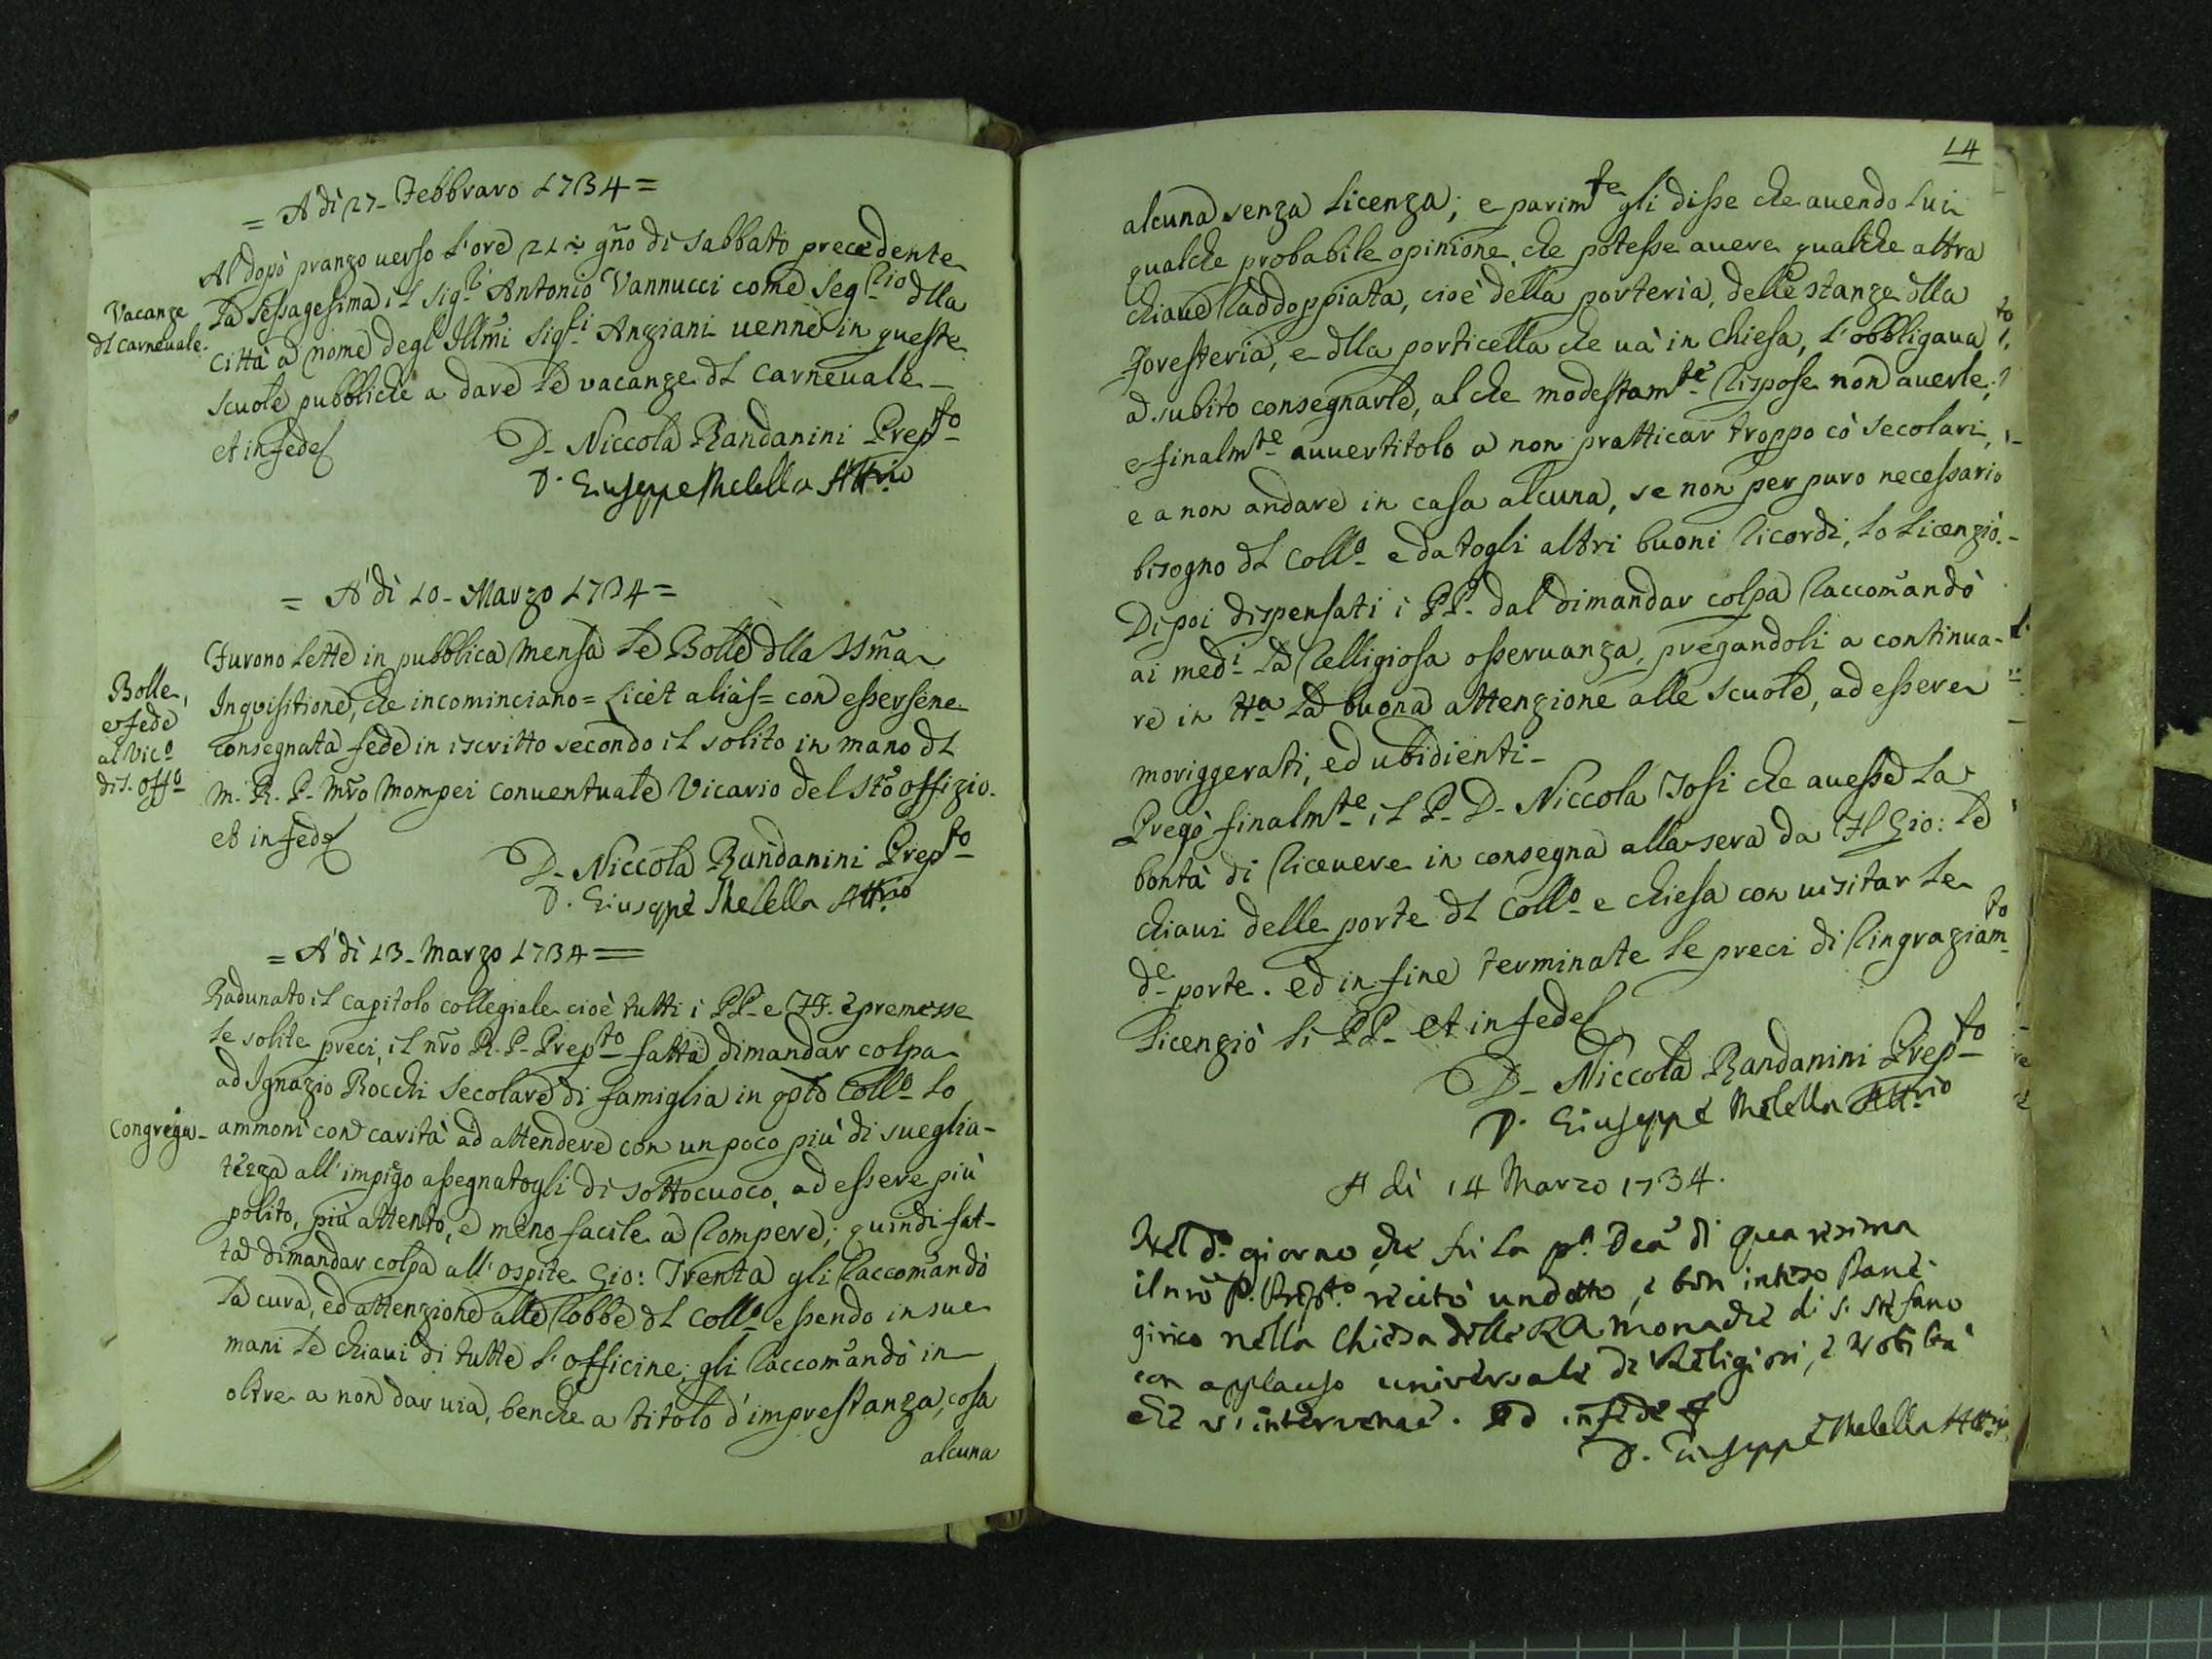 = A dì 27- Febbraro 1734 =
Al dopò pranzo uerso l'ore 21 i gño di sabbato precedente
Vacanze
dl carneuale-
la sessagesima il Sig.r Antonio Vannucci come Seg.rio dlla
Città a nome degl'Illmi Sig.ri Anziani uenne in queste
scuole pubbliche a dare le vacanze dl carneuale-
et in fede
D- Niccola Randanini Prep.to
D. Giuseppe Melella Att.rio
= A dì 10- Marzo 1734 =
Bolle,
e fede
al Vic.o
di S. Off.o
Furono lette in pubblica mensa le Bolle dlla SSma
Inquisitione, che incominciano = Licèt aliàs = con essersene
consegnata fede in iscritto secondo il solito in mano dl
M. R. P. Mro Mompei conuentuale Vicario del Sto offizio-
et in fede
D- Niccola Randanini Prep.to
D. Giuseppe Melella Att.rio
= A dì 13- Marzo 1734 =
Radunato il capitolo collegiale cioè tutti i PP- e FF. e premesse
le solite preci, il nro R. P- Prep.to fatta dimandar colpa
ad Ignazio Rocchi secolare di famiglia in qsto Coll.o lo
Congrega-
ammonì con carità ad attendere con un poco più di sueglia-
tezza all'impiego assegnatogli di sottocuoco, ad essere più
polito, più attento, e meno facile a rompere; quindi fat-
ta dimandar colpa all'ospite Gio: Trenta gli raccomandò
la cura, ed attenzione alle robbe dl Coll.o essendo in sue
mani le chiaui di tutte l'officine; gli raccomandò in
oltre a non dar uia, benche a titolo d'imprestanza, cosa
alcuna
14
alcuna senza licenza; e parim.te gli disse che auendo lui
qualche probabile opinione, che potesse auere qualche altra
chiaue raddoppiata, cioè della porteria, delle stanze dlla
foresteria, e dlla porticella che uà in Chiesa, l'obbligaua
a subito consegnarle, al che modestam.te rispose non auerle;
e finalm.te auuertitolo a non pratticar troppo cò secolari,
e a non andare in casa alcuna, se non per puro necessario
bisogno dl Coll.o e datogli altri buoni ricordi, lo licenziò.-
Di poi dispensati i PP- dal dimandar colpa raccomandò
ai med.i la relligiosa osseruanza, pregandoli a continua-
re in tta la buona attenzione alle scuole, ad essere
moriggerati, ed ubidienti-
Pregò finalm.te il P- D- Niccola Tosi che auesse la
bontà di riceuere in consegna alla sera da Fl Gio: le
chiaui delle porte dl Coll.o e chiesa con uisitar le
d.e porte. ed in fine terminate le preci di ringraziam.to
licenziò li PP- et in fede
D- Niccola Randanini Prep.to
D. Giuseppe Melella Att.rio
A dì 14 Marzo 1734.
Nel d.o giorno, che fu la p.a Dca di Quaresima
il nro P. Prep.to recitò un dotto, e ben inteso Pane-
girico nella Chiesa delle RR Monache di S. Stefano
con applauso universale de Religiosi, e Nobiltà
che vi intervenne. Ed in fede
D. Giuseppe Melella Att.rio